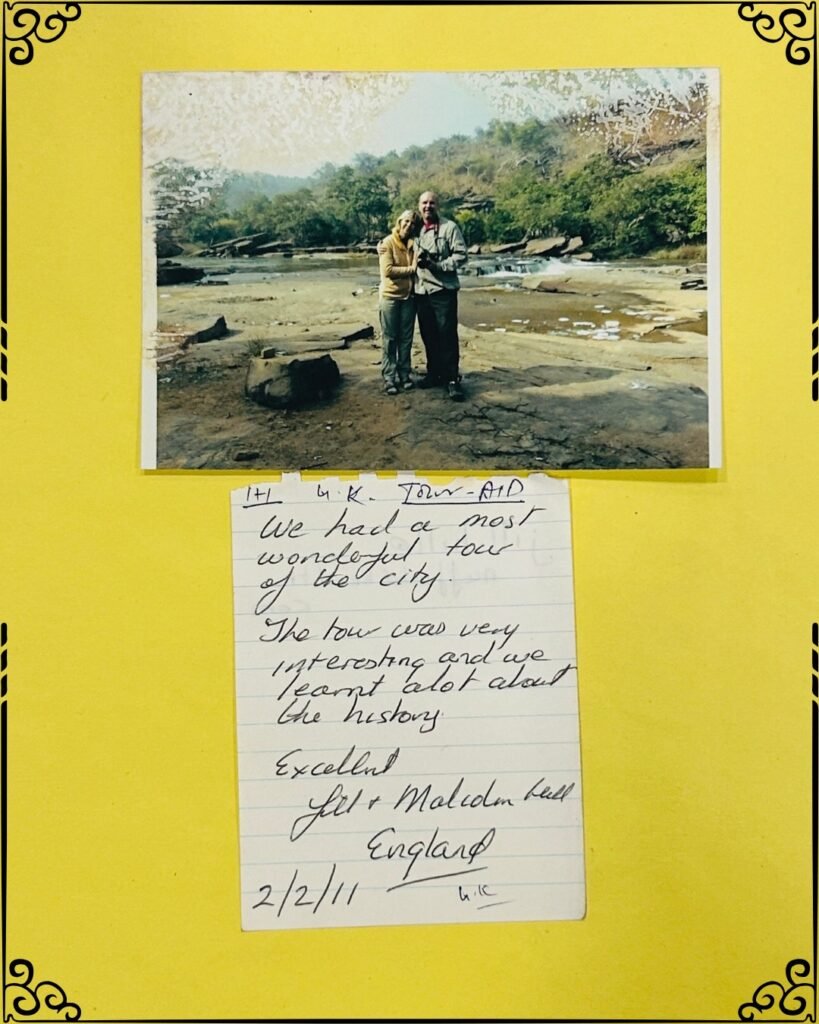 1+1 U.K. TOUR-AID
We had a most
wonderful tour
of the city.
The tour was very
interesting and we
learnt alot about
the history.
Excellent
Jill + Malcolm
England
2/2/11 U.K